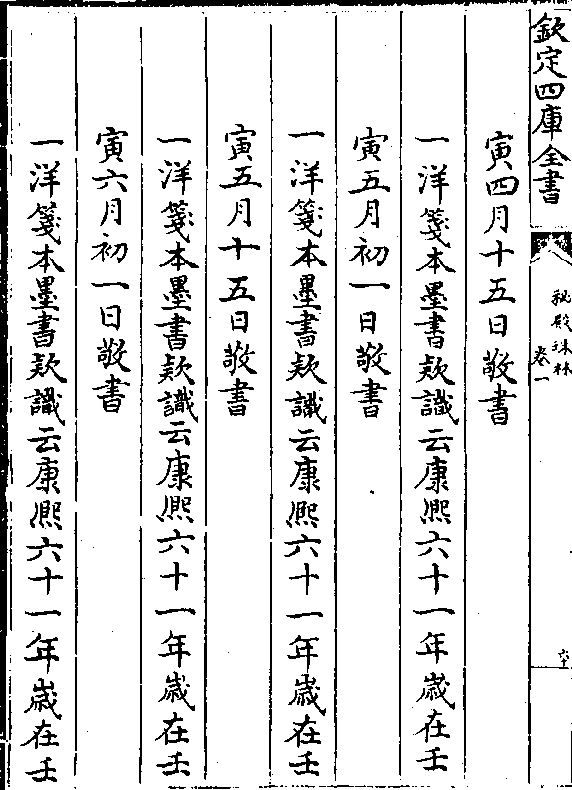 欽定四庫全書
秘殿珠林
卷一
六十
寅四月十五日敬書
一洋箋本墨書欵識云康熙六十一年歲在壬
寅五月初一日敬書
一洋箋本墨書欵識云康熙六十一年歲在壬
寅五月十五日敬書
一洋箋本墨書欵識云康熙六十一年歲在壬
寅六月初一日敬書
一洋箋本墨書欵識云康熙六十一年歲在壬